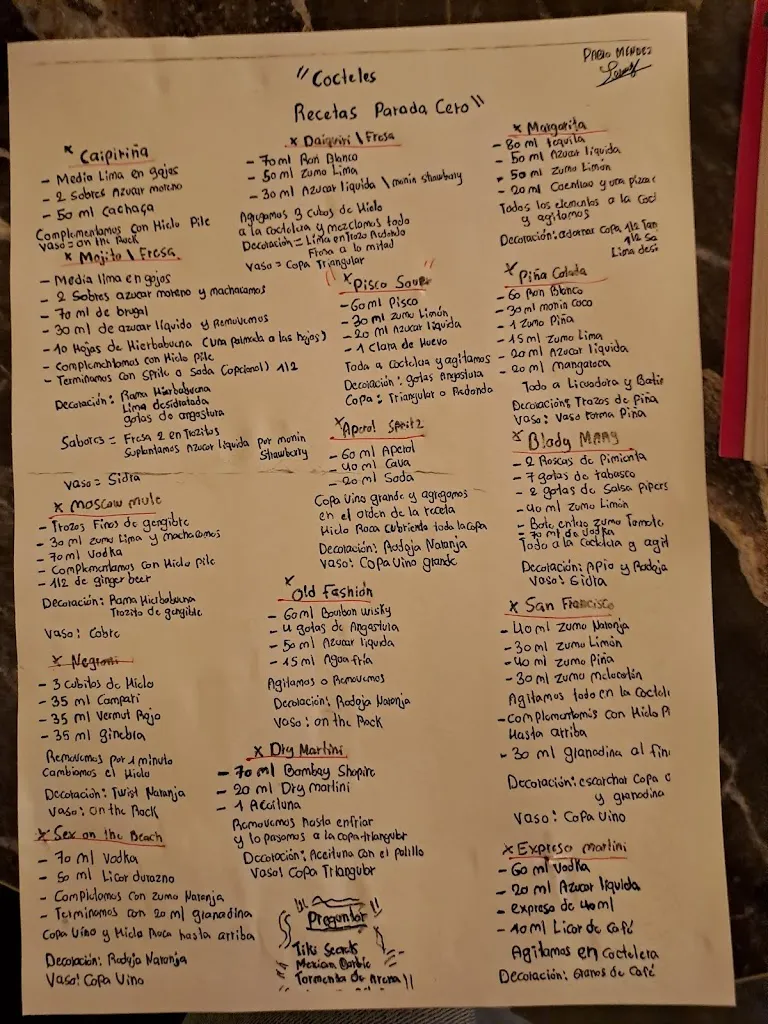 Pablo Méndez
"Cocteles
Recetas Parada Cero"
x Caipiriña
- Media Lima en gajos
- 2 Sobres Azucar moreno
- 50 ml cachaça
Complementamos con Hielo Pile
Vaso = on the Rock
x Mojito \ Fresa
- Media lima en gajos
- 2 Sobres azucar moreno y machacamos
- 70 ml de brugal
- 30 ml de azucar líquido y Removemos
- 10 Hojas de Hierbabuena (una palmada a las hojas)
- Complementamos con Hielo Pile
- Terminamos con Sprite o Soda (opcional) 1/2
Decoración: Rama Hierbabuena
Lima desidratada
gotas de angostura
Sabores = Fresa 2 en Trozitos
Suplantamos Azucar líquida por monin
Strawburry
Vaso = Sidra
x Moscow mule
- Trozos Finos de gengibre
- 30 ml zumo Lima y machacamos
- 70 ml Vodka
- Complementamos con Hielo pile
- 1/2 de ginger beer
Decoración: Rama Hierbabuena
Trozito de gengible
Vaso: Cobre
x Negroni
- 3 cubitos de Hielo
- 35 ml Campari
- 35 ml Vermut Rojo
- 35 ml ginebra
Removemos por 1 minuto
Cambiamos el Hielo
Decoración: Twist Naranja
Vaso: on the Rock
x Sex on the Beach
- 70 ml Vodka
- 50 ml Licor durazno
- Completamos con zumo Naranja
- Terminamos con 20 ml granadina
Copa Vino y Hielo Roca hasta arriba
Decoración: Rodaja Naranja
Vaso: Copa Vino
x Daiquiri \ Fresa
- 70 ml Ron Blanco
- 50 ml zumo Lima
- 30 ml Azucar liquida \ monin strawburry
Agregamos 3 cubos de Hielo
a la Coctelera y mezclamos todo
Decoración = Lima en Trozo Redondo
Fresa a la mitad
Vaso = Copa Triangular
"x Pisco Sour"
- 60 ml Pisco
- 30 ml zumo Limón
- 20 ml Azucar líquida
- 1 Clara de Huevo
Toda a Coctelera y agitamos
Decoración: gotas Angostura
Copa: Triangular o Redonda
x Aperol Spritz
- 60 ml Aperol
- 40 ml Cava
- 20 ml Soda
Copa Vino grande y agregamos
en el orden de la receta
Hielo Roca cubriendo toda la copa
Decoración: Rodaja Naranja
Vaso: Copa Vino grande
x Old Fashión
- 60 ml Bourbon wisky
- 4 gotas de Angostura
- 50 ml Azucar liquida
- 15 ml Agua fría
Agitamos o Removemos
Decoración: Rodaja Naranja
Vaso: on the Rock
x Dry Martini
- 70 ml Bombay Shapire
- 20 ml Dry martini
- 1 Aceituna
Removemos hasta enfriar
y lo pasamos a la copa triangular
Decoración: Aceituna con el palillo
Vaso: Copa Triangular
"Preguntar"
Tiki
Mexian Barbie
Tormenta de Arena"
x Margarita
- 80 ml tequila
- 50 ml Azucar líquida
- 50 ml zumo Limón
- 20 ml Cointreau y una pizca
Todos los elementos a la Coct
y agitamos
Decoración: adornar Copa 1/2 Tan
1/2 Sa
Lima desi
x Piña Colada
- 60 Ron Blanco
- 30 ml monin coco
- 1 zumo Piña
- 15 ml zumo Lima
- 20 ml Azucar líquida
- 20 ml mangaroca
Todo a Licuadora y Batir
Decoración: Trozos de Piña
Vaso: Vaso Forma Piña
x Blady Marg
- 2 Roscas de Pimienta
- 7 gotas de tabasco
- 2 gotas de Salsa Pipers
- 40 ml zumo Limón
- Bote entero zumo Tomate
- 70 ml de Vodka
Todo a la Coctelera y agit
Decoración: Apio y Rodaja
Vaso: Sidra
x San Francisco
- 40 ml zumo Naranja
- 30 ml zumo Limón
- 40 ml zumo Piña
- 30 ml zumo melocotón
Agitamos todo en la Coctel
- complementamis con Hielo Pi
Hasta arriba
- 30 ml granadina al fin
Decoración: escarchar Copa c
y granadina
Vaso: Copa Vino
x Expreso martini
- 60 ml Vodka
- 20 ml Azucar líquida
- expreso de 40 ml
- 40 ml Licor de Café
Agitamos en Coctelera
Decoración: Granos de Café